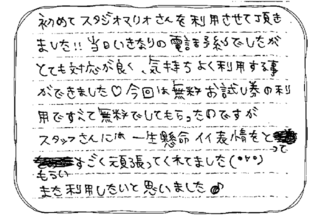 初めてスタジオマリオさんを利用させて頂き
ました!!当日いきなりの電話予約でしたが
とても対応が良く、気持ちよく利用する事
ができました♡今回は無料お試し券の利
用ですべて無料でしてもらったのですが
スタッフさんには一生懸命イイ表情をとって
もらいすごく頑張ってくれてました(^▽^)
また利用したいと思いました♪